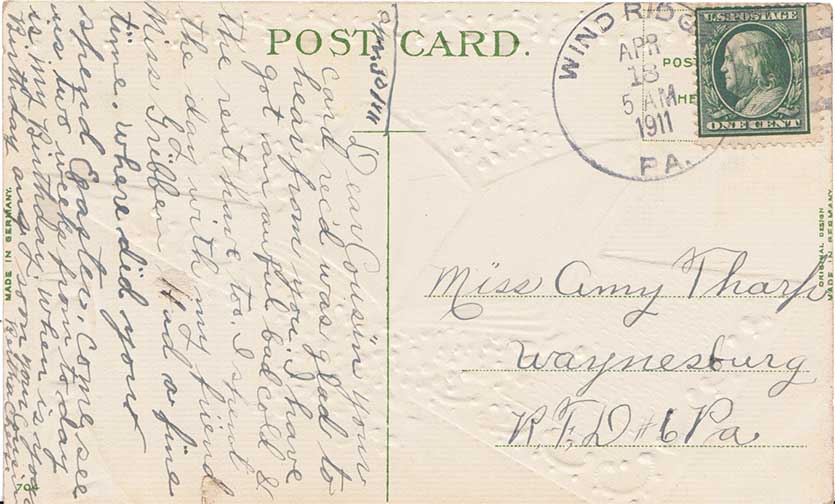 POST CARD.
WIND RIDGE
APR
18
5 AM
1911
PA.
U.S. POSTAGE
ONE CENT
Dear Cousin your
card rec'd was glad to
hear from you. I have
got an awful bad cold &
the rest have too. I spent
the day with my friend
Miss Gribben Had a fine
time. where did you
spend Easter. Come see
us two weeks from to-day
is my Birthday. when is your
Birthday ans soon your loving
Cousin
Miss Amy Tharp
Waynesburg
R.F.D #6 Pa
MADE IN GERMANY.
ORIGINAL DESIGN
MADE IN GERMANY.
704